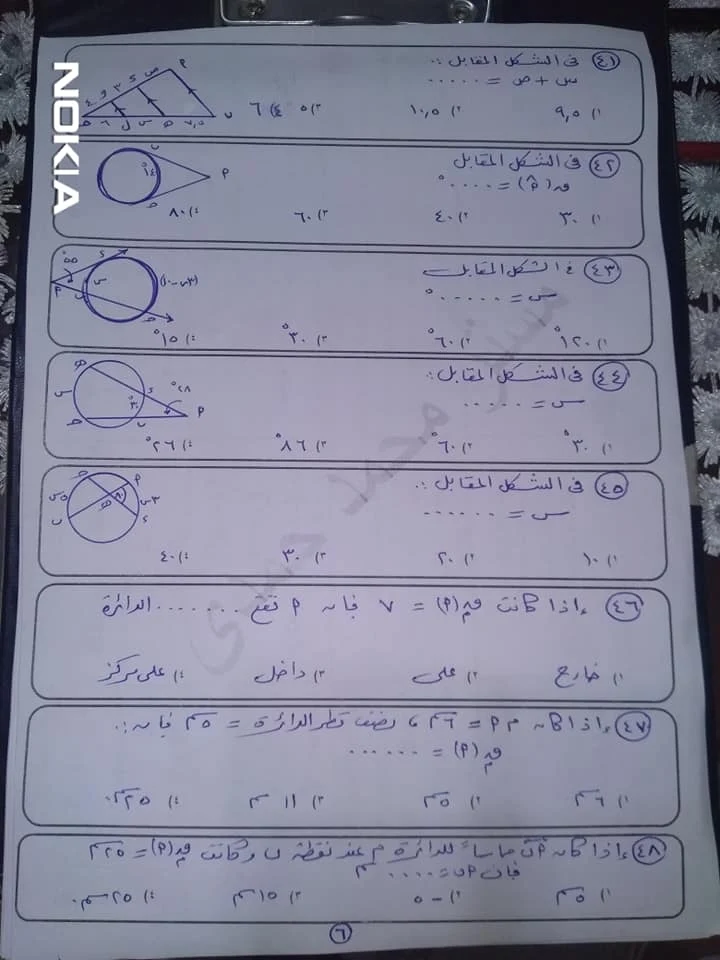 NOKIA
٤١ فى الشكل المقابل :.
س + ص = ......
١) ٩,٥ ٢) ١٠,٥ ٣) ٥ ٤) ٦
٤٢ فى الشكل المقابل
ق(م̂) = .....°
١) ٣٠ ٢) ٤٠ ٣) ٦٠ ٤) ٨٠
٤٣ فى الشكل المقابل
س = ......°
١) ١٢٠° ٢) ٦٠° ٣) ٣٠° ٤) ١٥°
٤٤ فى الشكل المقابل :.
س = ......
١) ٣٠° ٢) ٦٠° ٣) ٨٦° ٤) ٢٦°
٤٥ فى الشكل المقابل :.
س = ......
١) ١٠ ٢) ٢٠ ٣) ٣٠ ٤) ٤٠
٤٦ إذا كانت قم(م) = ٧ فإن م تقع ....... الدائرة
١) خارج ٢) على ٣) داخل ٤) على مركز
٤٧ إذا كان م م = ٦سم ، نصف قطر الدائرة = ٥سم فإن :.
قم(م) = ......
١) ٦سم ٢) ٥سم ٣) ١١سم ٤) ٢٥سم.
٤٨ إذا كان م ب مماساً للدائرة م عند نقطة ب وكانت قم(م) = ٢٥سم
فإن م ب = ..... سم
١) ٥سم ٢) -٥ ٣) ١٥سم ٤) ٢٥سم.
٦
مستر محمد حمدى